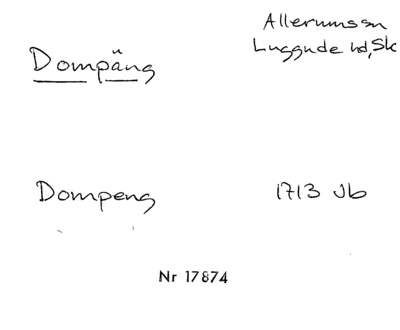 Allerums sn
Luggude hd, Sk
Dompäng
Dompeng 1713 Jb
Nr 17874